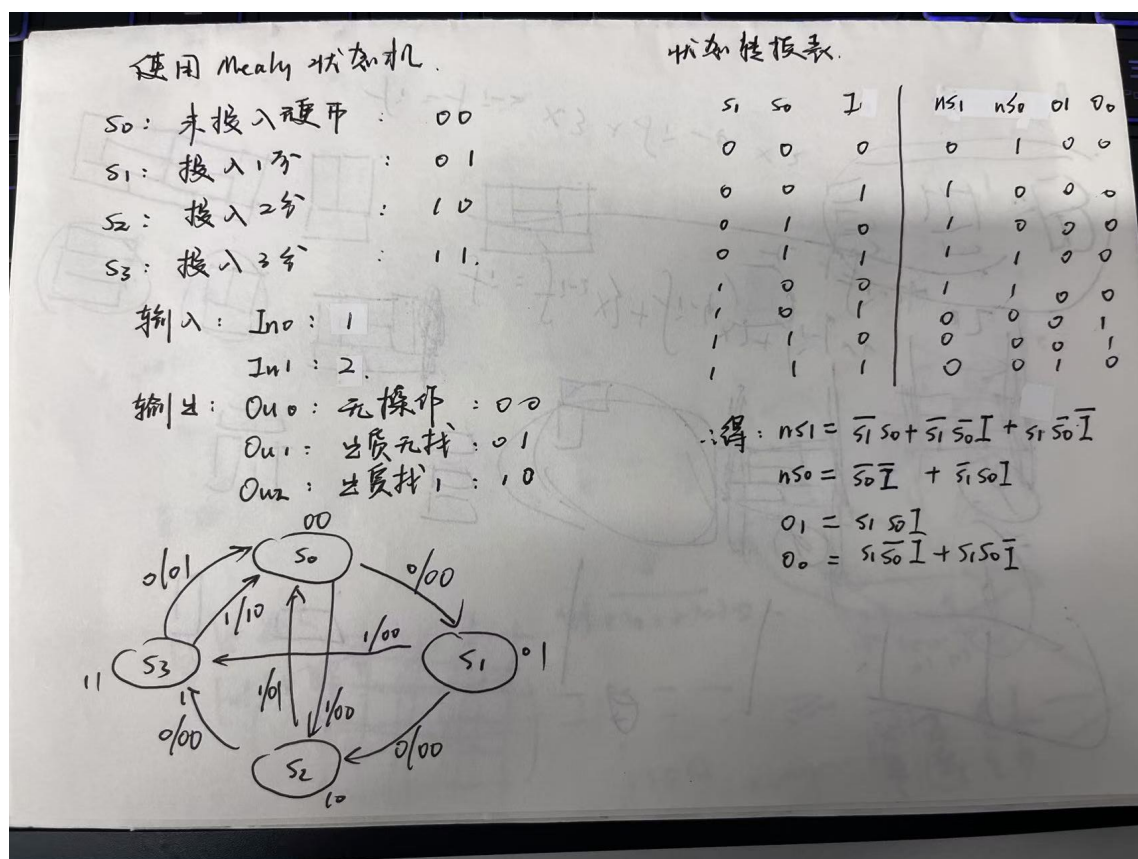 使用 Mealy 状态机.
S0: 未投入硬币 : 00
S1: 投入1分 : 01
S2: 投入2分 : 10
S3: 投入3分 : 11.
输入: In0: 1
In1: 2.
输出: Ou0: 无操作 : 00
Ou1: 出货无找 : 01
Ou2: 出货找1 : 10
00
S0
0/01
0/00
1/10
1/00
S3
S1
01
11
1/01
1/00
0/00
0/00
S2
10
状态转换表.
S1 S0 I nS1 nS0 O1 O0
0 0 0 0 1 0 0
0 0 1 1 0 0 0
0 1 0 1 0 0 0
0 1 1 1 1 0 0
1 0 0 1 1 0 0
1 0 1 0 0 0 1
1 1 0 0 0 0 1
1 1 1 0 0 1 0
∴得: nS1 = S̅1 S0 + S̅1 S̅0 I + S1 S̅0 I̅
nS0 = S̅0 I̅ + S̅1 S0 I
O1 = S1 S0 I
O0 = S1 S̅0 I + S1 S0 I̅